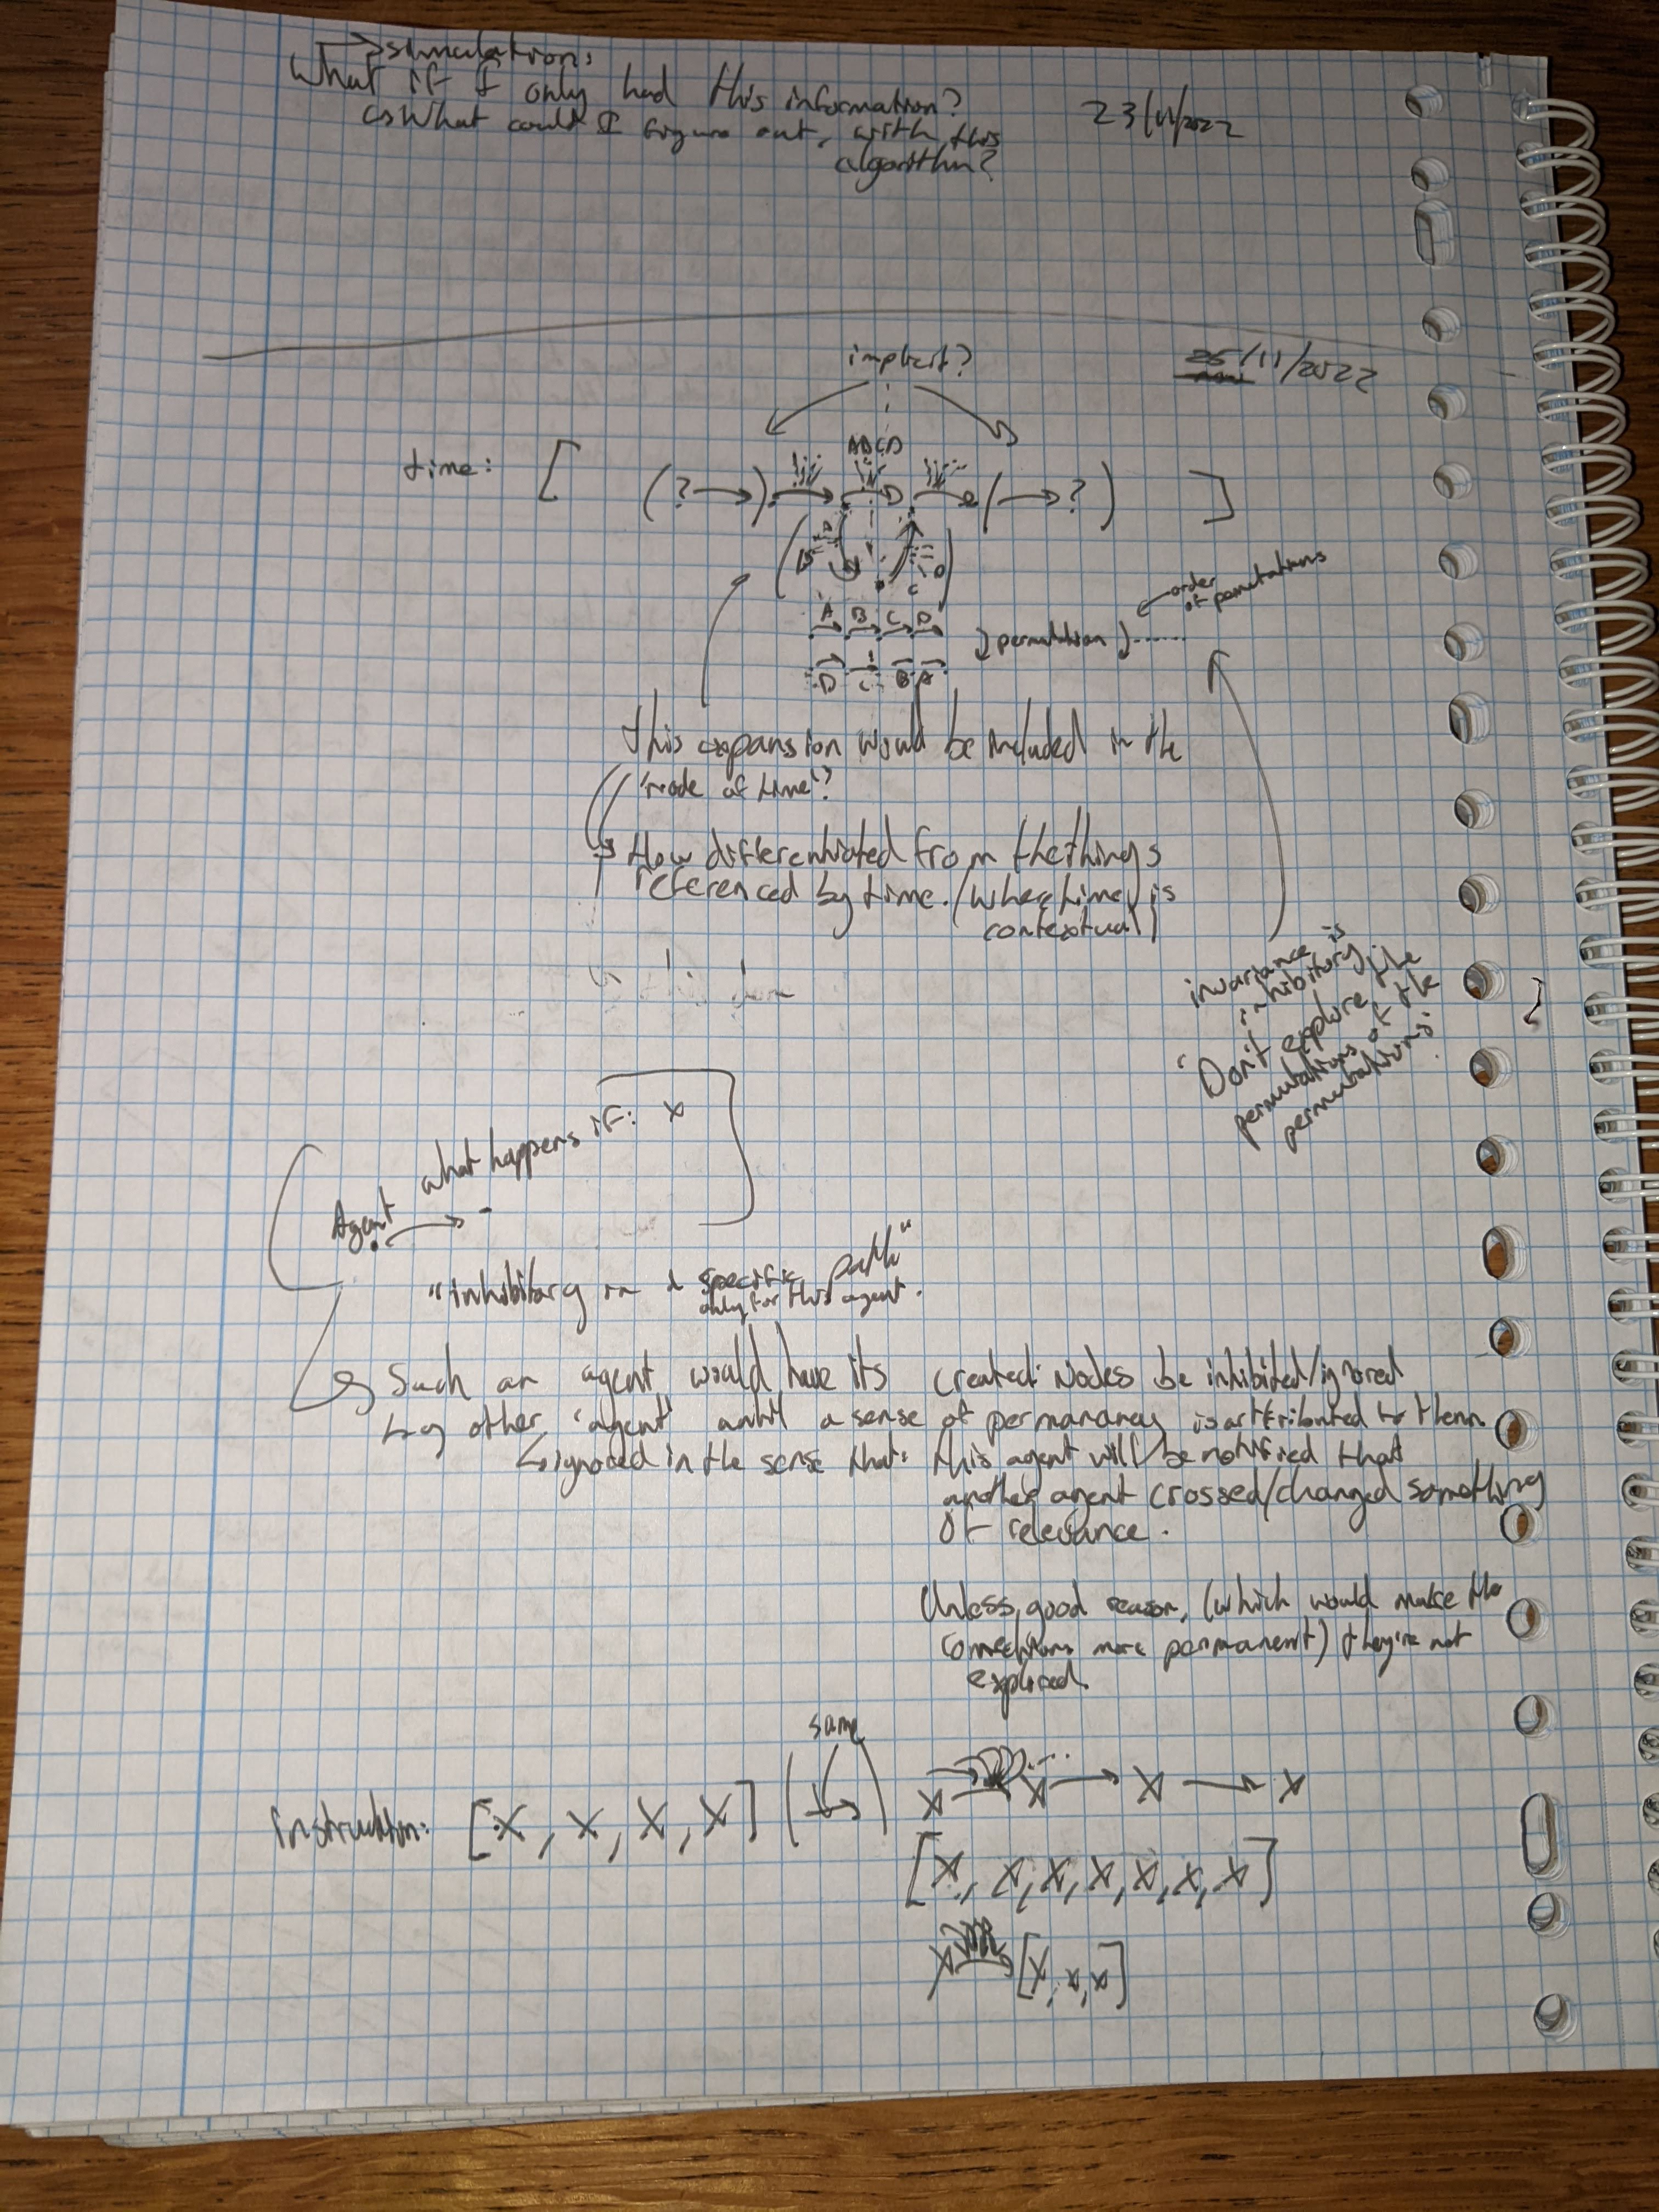 simulation:
What if I only had this information?
↳What could I figure out, with this
algorithm?
23/11/2022
25/11/2022
implicit?
ABCD
time: [ (?→) → → → (→?) ]
A B C D
D C B A
permutation
order
of permutations
this expansion would be included in the
'node of time'?
How differentiated from the things
referenced by time. (where time is
contextual)
invariance is
inhibitory
"Don't explore the
permutations of the
permutations"
what happens if: x
Agent
"inhibitory in a specific path"
only for this agent.
Such an agent would have its created nodes be inhibited/ignored
by other 'agent' until a sense of permanancy is arttributed to them.
↳ignored in the sense that: this agent will be notified that
another agent crossed/changed something
of relevance.
Unless good reason, (which would make the
connections more permanent) they're not
explored.
same
instruction: [x, x, x, x] (→) x → x → x → x
[x, x, x, x, x, x, x]
x → [x, x, x]